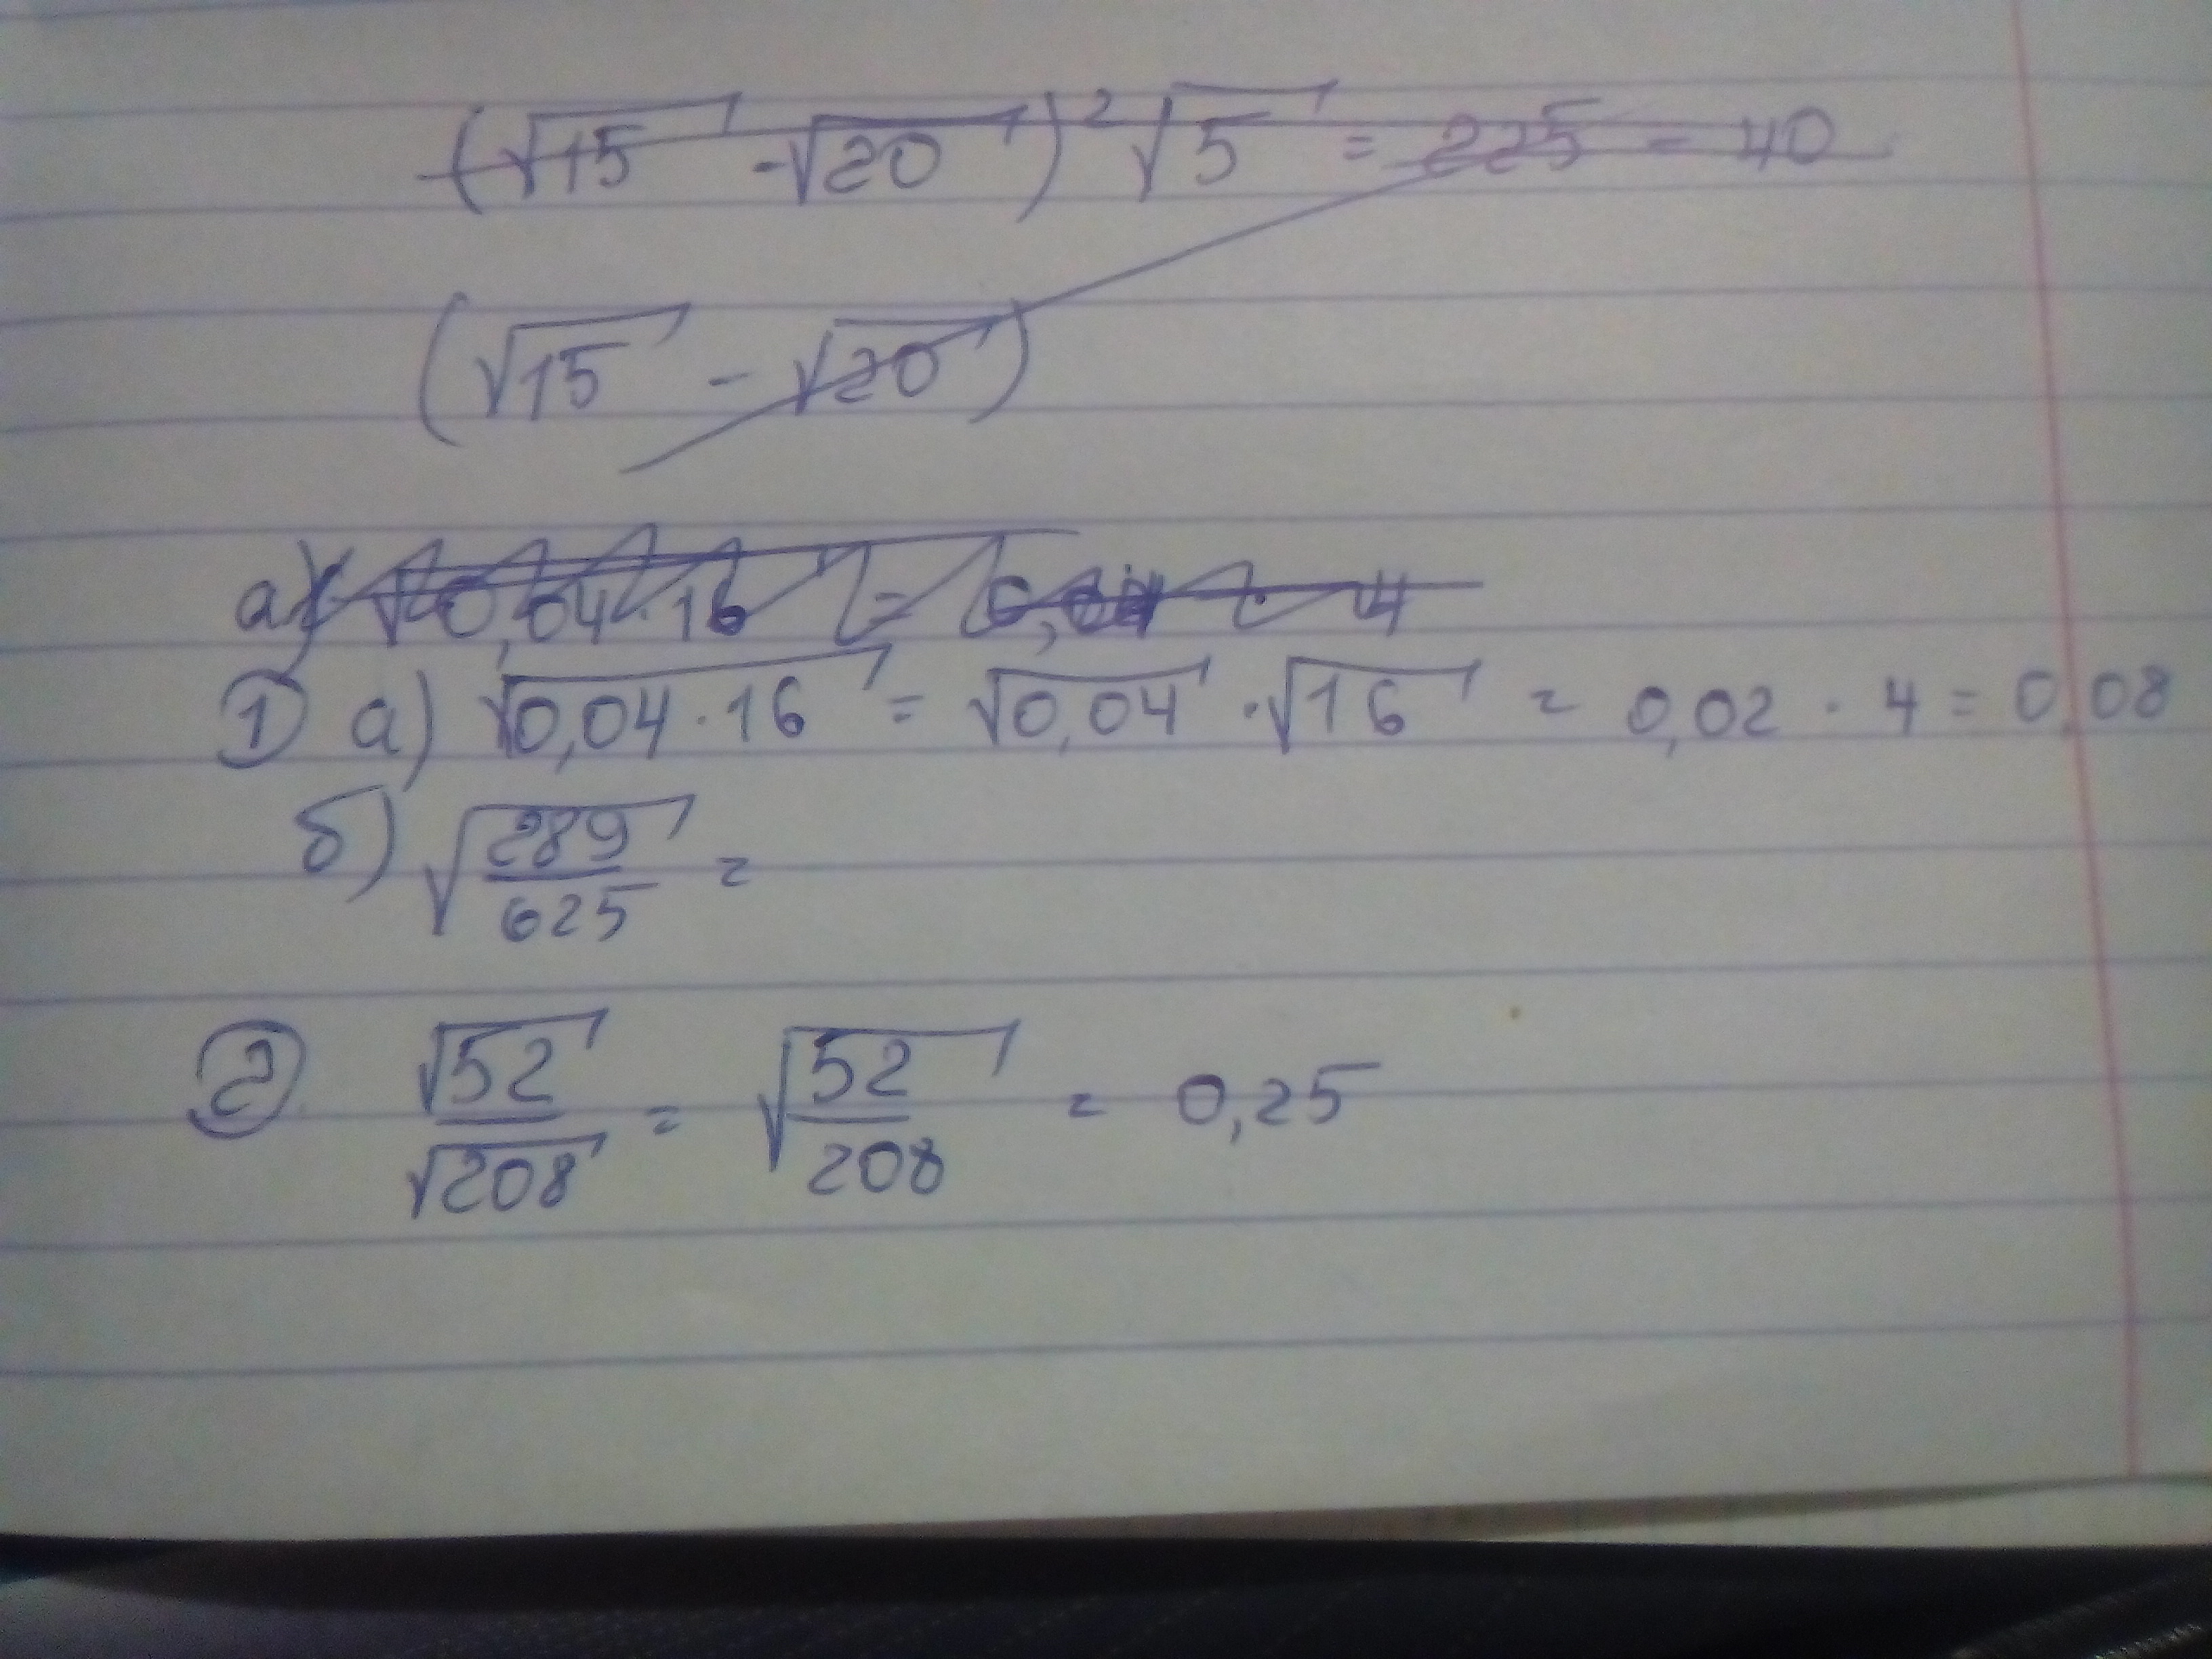 (√15 - √20)² √5 = 225 = 40
(√15 - √20)
а) √0,04 · 16 = 0, · 4
① а) √0,04 · 16 = √0,04 · √16 = 0,02 · 4 = 0,08
б) √289/625 =
② √52/√208 = √52/208 = 0,25